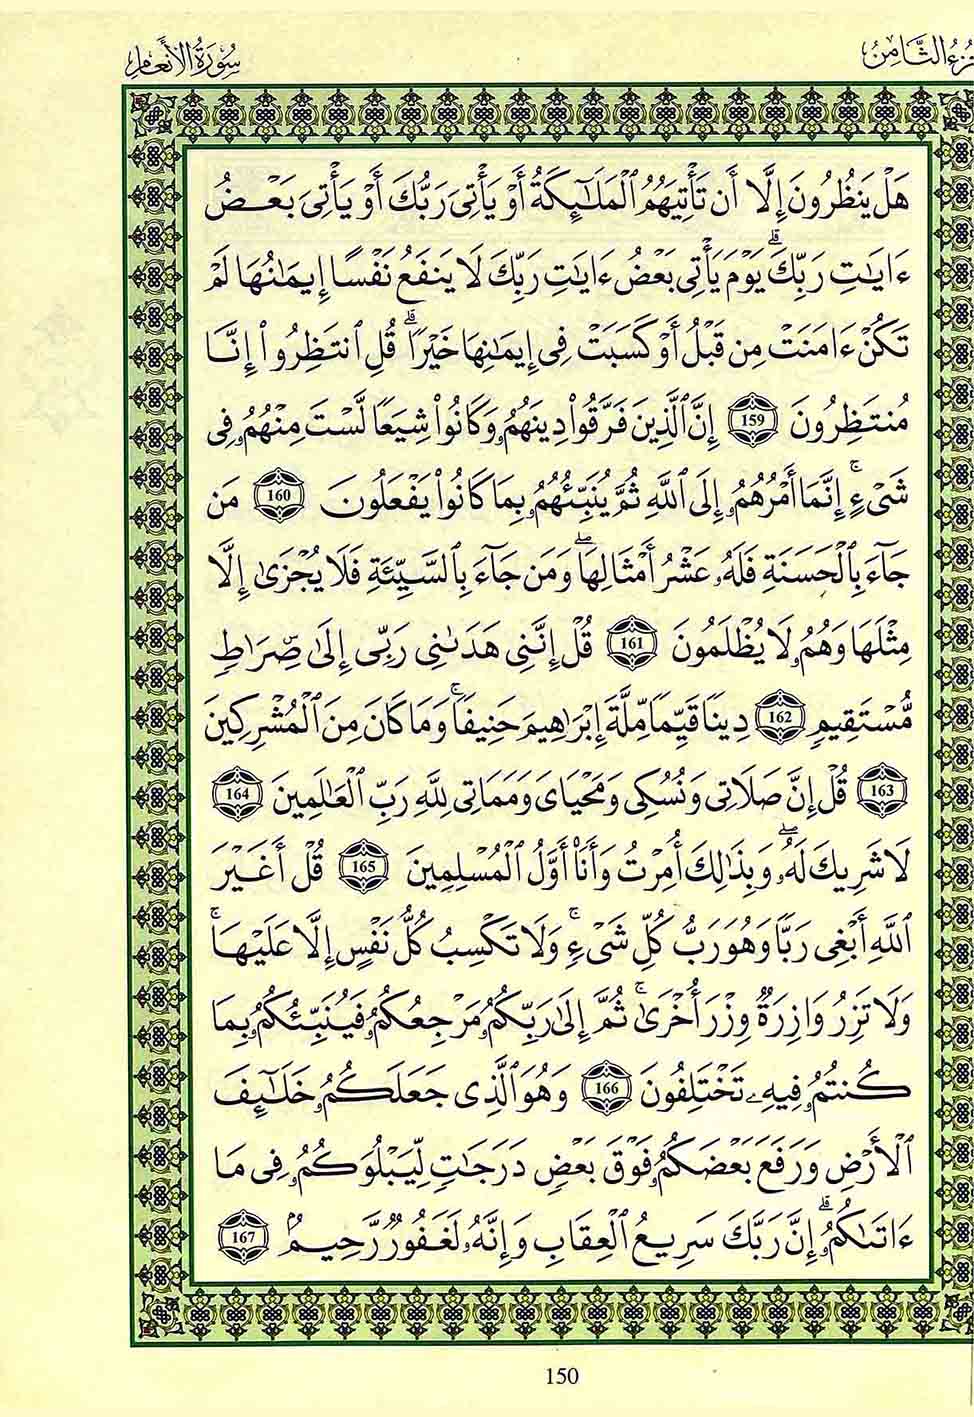 جزء الثامن
سورة الأنعام
هَلْ يَنظُرُونَ إِلَّا أَن تَأْتِيَهُمُ ٱلْمَلَٰٓئِكَةُ أَوْ يَأْتِىَ رَبُّكَ أَوْ يَأْتِىَ بَعْضُ
ءَايَٰتِ رَبِّكَ ۗ يَوْمَ يَأْتِى بَعْضُ ءَايَٰتِ رَبِّكَ لَا يَنفَعُ نَفْسًا إِيمَٰنُهَا لَمْ
تَكُنْ ءَامَنَتْ مِن قَبْلُ أَوْ كَسَبَتْ فِى إِيمَٰنِهَا خَيْرًا ۗ قُلِ ٱنتَظِرُوا۟ إِنَّا
مُنتَظِرُونَ 159 إِنَّ ٱلَّذِينَ فَرَّقُوا۟ دِينَهُمُۥ وَكَانُوا۟ شِيَعًا لَّسْتَ مِنْهُمُۥ فِى
شَىْءٍ ۚ إِنَّمَا أَمْرُهُمُۥ إِلَى ٱللَّهِ ثُمَّ يُنَبِّئُهُمُۥ بِمَا كَانُوا۟ يَفْعَلُونَ 160 مَن
جَآءَ بِٱلْحَسَنَةِ فَلَهُۥ عَشْرُ أَمْثَالِهَا ۖ وَمَن جَآءَ بِٱلسَّيِّئَةِ فَلَا يُجْزَىٰ إِلَّا
مِثْلَهَا وَهُمُۥ لَا يُظْلَمُونَ 161 قُلْ إِنَّنِى هَدَىٰنِى رَبِّى إِلَىٰ صِرَٰطٍ
مُّسْتَقِيمٍ 162 دِينًا قَيِّمًا مِّلَّةَ إِبْرَٰهِيمَ حَنِيفًا ۚ وَمَا كَانَ مِنَ ٱلْمُشْرِكِينَ
163 قُلْ إِنَّ صَلَاتِى وَنُسُكِى وَمَحْيَاىَ وَمَمَاتِى لِلَّهِ رَبِّ ٱلْعَٰلَمِينَ 164
لَا شَرِيكَ لَهُۥ ۖ وَبِذَٰلِكَ أُمِرْتُ وَأَنَا۠ أَوَّلُ ٱلْمُسْلِمِينَ 165 قُلْ أَغَيْرَ
ٱللَّهِ أَبْغِى رَبًّا وَهُوَ رَبُّ كُلِّ شَىْءٍ ۚ وَلَا تَكْسِبُ كُلُّ نَفْسٍ إِلَّا عَلَيْهَا ۚ
وَلَا تَزِرُ وَازِرَةٌ وِزْرَ أُخْرَىٰ ۚ ثُمَّ إِلَىٰ رَبِّكُمُۥ مَرْجِعُكُمُۥ فَيُنَبِّئُكُمُۥ بِمَا
كُنتُمُۥ فِيهِۦ تَخْتَلِفُونَ 166 وَهُوَ ٱلَّذِى جَعَلَكُمُۥ خَلَٰٓئِفَ
ٱلْأَرْضِ وَرَفَعَ بَعْضَكُمُۥ فَوْقَ بَعْضٍ دَرَجَٰتٍ لِّيَبْلُوَكُمُۥ فِى مَا
ءَاتَىٰكُمُۥ ۗ إِنَّ رَبَّكَ سَرِيعُ ٱلْعِقَابِ وَإِنَّهُۥ لَغَفُورٌ رَّحِيمٌۢ 167
150